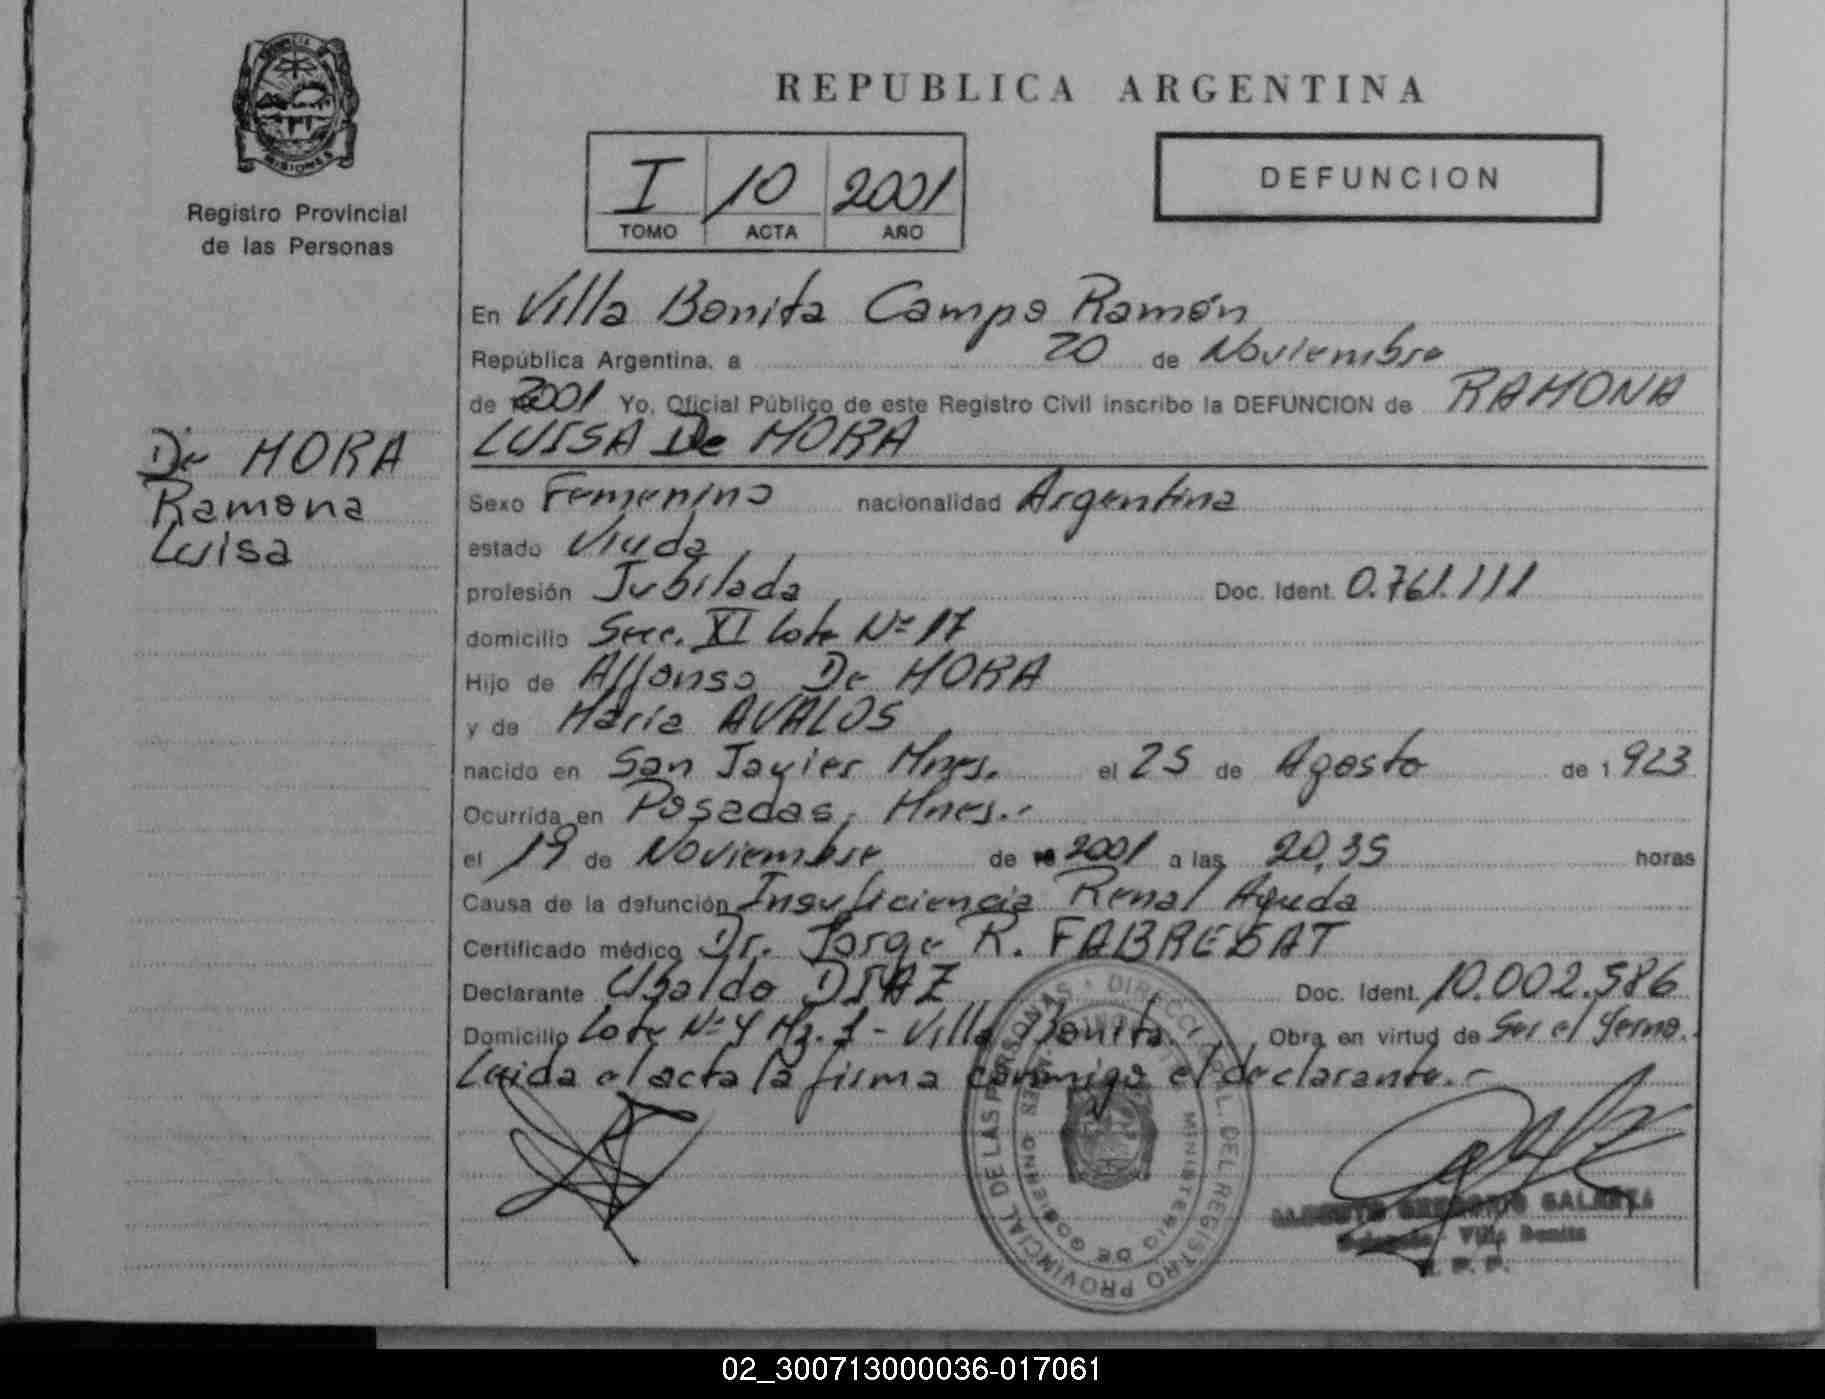 PROVINCIA DE
MISIONES
Registro Provincial
de las Personas
De MORA
Ramona
Luisa
REPUBLICA ARGENTINA
I 10 2001
TOMO ACTA AÑO
DEFUNCION
En Villa Bonita Campo Ramón
República Argentina, a 20 de Noviembre
de 2001 Yo, Oficial Público de este Registro Civil inscribo la DEFUNCION de RAMONA
LUISA De MORA
Sexo Femenino nacionalidad Argentina
estado Viuda
profesión Jubilada Doc. Ident. 0.761.111
domicilio Secc. XI Lote Nº 17
Hijo de Alfonso De MORA
y de María AVALOS
nacido en San Javier Mnes. el 25 de Agosto de 1 923
Ocurrida en Posadas, Mnes.-
el 19 de Noviembre de 2001 a las 20,35 horas
Causa de la defunción Insuficiencia Renal Aguda
Certificado médico Dr. Jorge R. FABRESAT
Declarante Ubaldo DIAZ Doc. Ident. 10.002.586
Domicilio Lote Nº 4 Mz. 1 - Villa Bonita. Obra en virtud de Ser el Yerno.
Leida el acta la firma conmigo el declarante.-
DIRECCION GRAL. DEL REGISTRO PROVINCIAL DE LAS PERSONAS
MINISTERIO DE GOBIERNO
GREGORIO GALARZA
Villa Bonita
R. P. P.
02_300713000036-017061